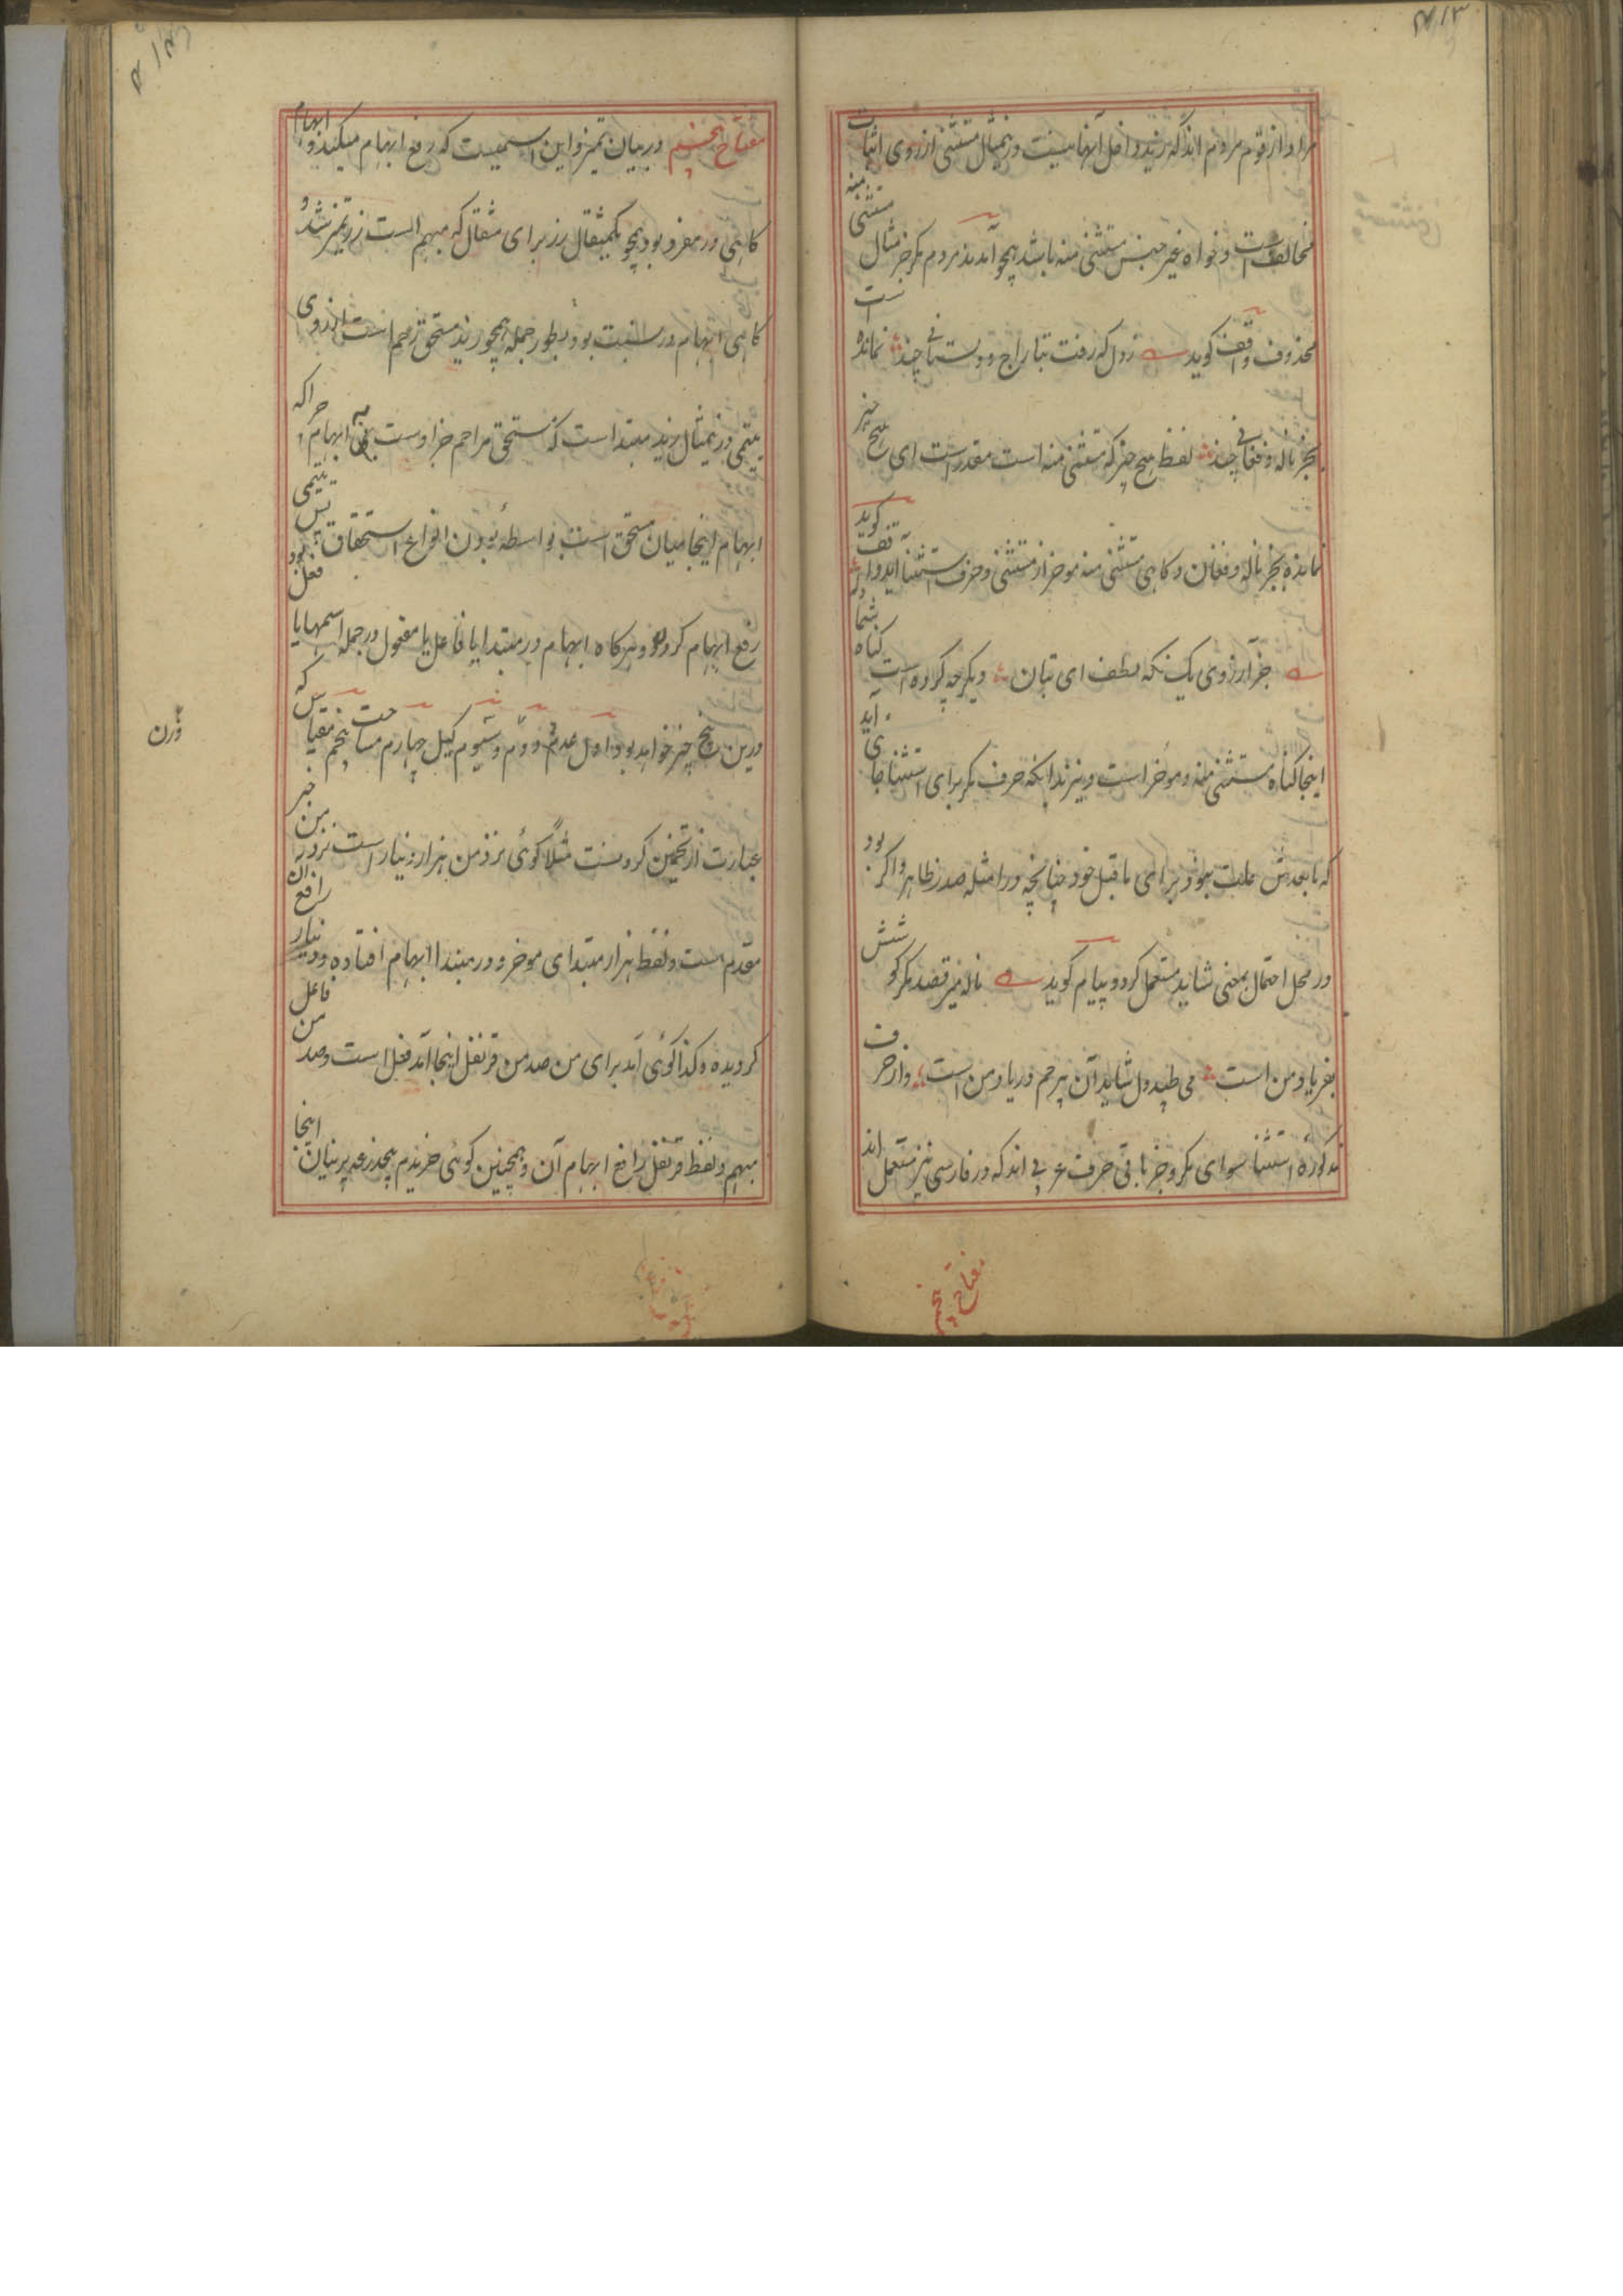 ۴۱۳
مراد از قوم مردم اند که زید داخل آنها نیست درینمثال مستثنی از روی اثبات
مخالف است و خواه غیر جنس مستثنی منه باشد همچو آمدند مردم مگر خر مثال مستثنی منه
محذوف واقف گوید ز دل که رفت بتاراج دوستانی چند نمانده است
بجز ناله و فغانی چند لفظ هیچ چیز که مستثنی منه است مقدر است ای هیچ چیز
نمانده بجز ناله و فغان و گاهی مستثنی منه موخر از مستثنی و حرف استثنا آید واقف گوید
جز آرزوی یک نگه لطف ای بتان دیگر چه کرده است گناه شما
اینجا گناه مستثنی منه و موخر است و نیز بدانکه حرف مگر برای استثنا جای آید
که ما بعدش علت بود برای ما قبل خود چنانچه در امثله صدر ظاهر و اگر بود
در محل احتمال بمعنی شاید مستعمل گردد پیام گوید ناله نیز قصد مگر گوشش
بفریاد من است می طپد دل شاید آن بیرحم در یاد من است و از حرف
مذکوره استثنا سوای مگر و جز باقی حرف عربی اند که در فارسی نیز مستعمل اند
مفتاح پنجم
۴۱۴
مفتاح پنجم در بیان تمیز و این اسمیست که رفع ابهام میکند و ابهام
گاهی در مفرد بود همچو یکمثقال زر برای مثقال که مبهم است زر تمیز شد و
گاهی ابهام در نسبت بود بطور جمله همچو زید مستحق ترحم است از روی
یتیمی درینمثال زید مبتدا است که مستحق مراحم خبر اوست ابهام چرا که
ابهام اینجا میان مستحق است بواسطه بودن انواع استحقاق پس یتیمی
رفع ابهام کرد و هرگاه ابهام در مبتدا یا فاعل یا مفعول در جمله اسمیه یا فعلی بود
درین پنج چیز خواهد بود اول عدد دوم وزن سیوم کیل چهارم مساحت پنجم مقیاس که
وزن
عبارت از تخمین کردنست مثلا گوئی نزد من هزار دینار است نزد من خبر
مقدم است و لفظ هزار مبتدای موخر و در مبتدا ابهام افتاده و دینار رافع آن
گردیده و کذا گوئی آمد برای من صد من قرنفل اینجا آمد فعل است و صد من فاعل
مبهم و لفظ قرنفل رافع ابهام آن و همچنین گوئی خریدم پنجذرعه پرنیان اینجا